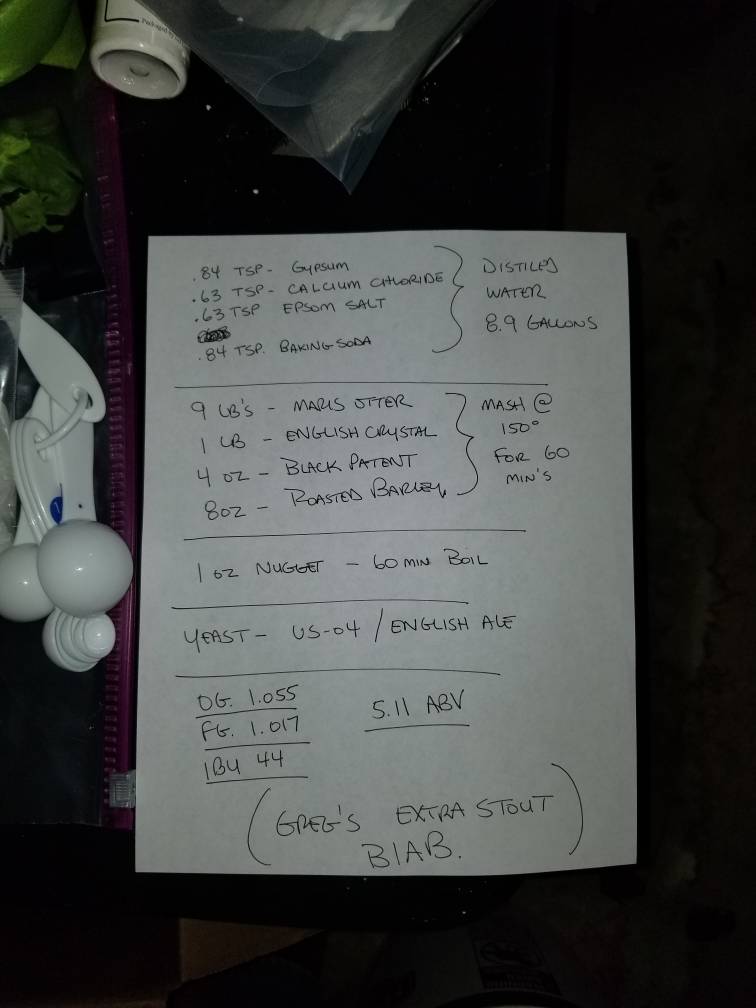 .84 TSP - GYPSUM
.63 TSP - CALCIUM CHLORIDE
.63 TSP EPSOM SALT
.84 TSP. BAKING SODA
DISTILED
WATER
8.9 GALLONS
9 LB'S - MARIS OTTER
1 LB - ENGLISH CRYSTAL
4 OZ - BLACK PATENT
8OZ - ROASTED BARLEY
MASH @
150°
FOR 60
MIN'S
1 OZ NUGGET - 60 MIN BOIL
YEAST - US-04 / ENGLISH ALE
OG. 1.055
FG. 1.017
IBU 44
5.11 ABV
(GREG'S EXTRA STOUT
BIAB.)